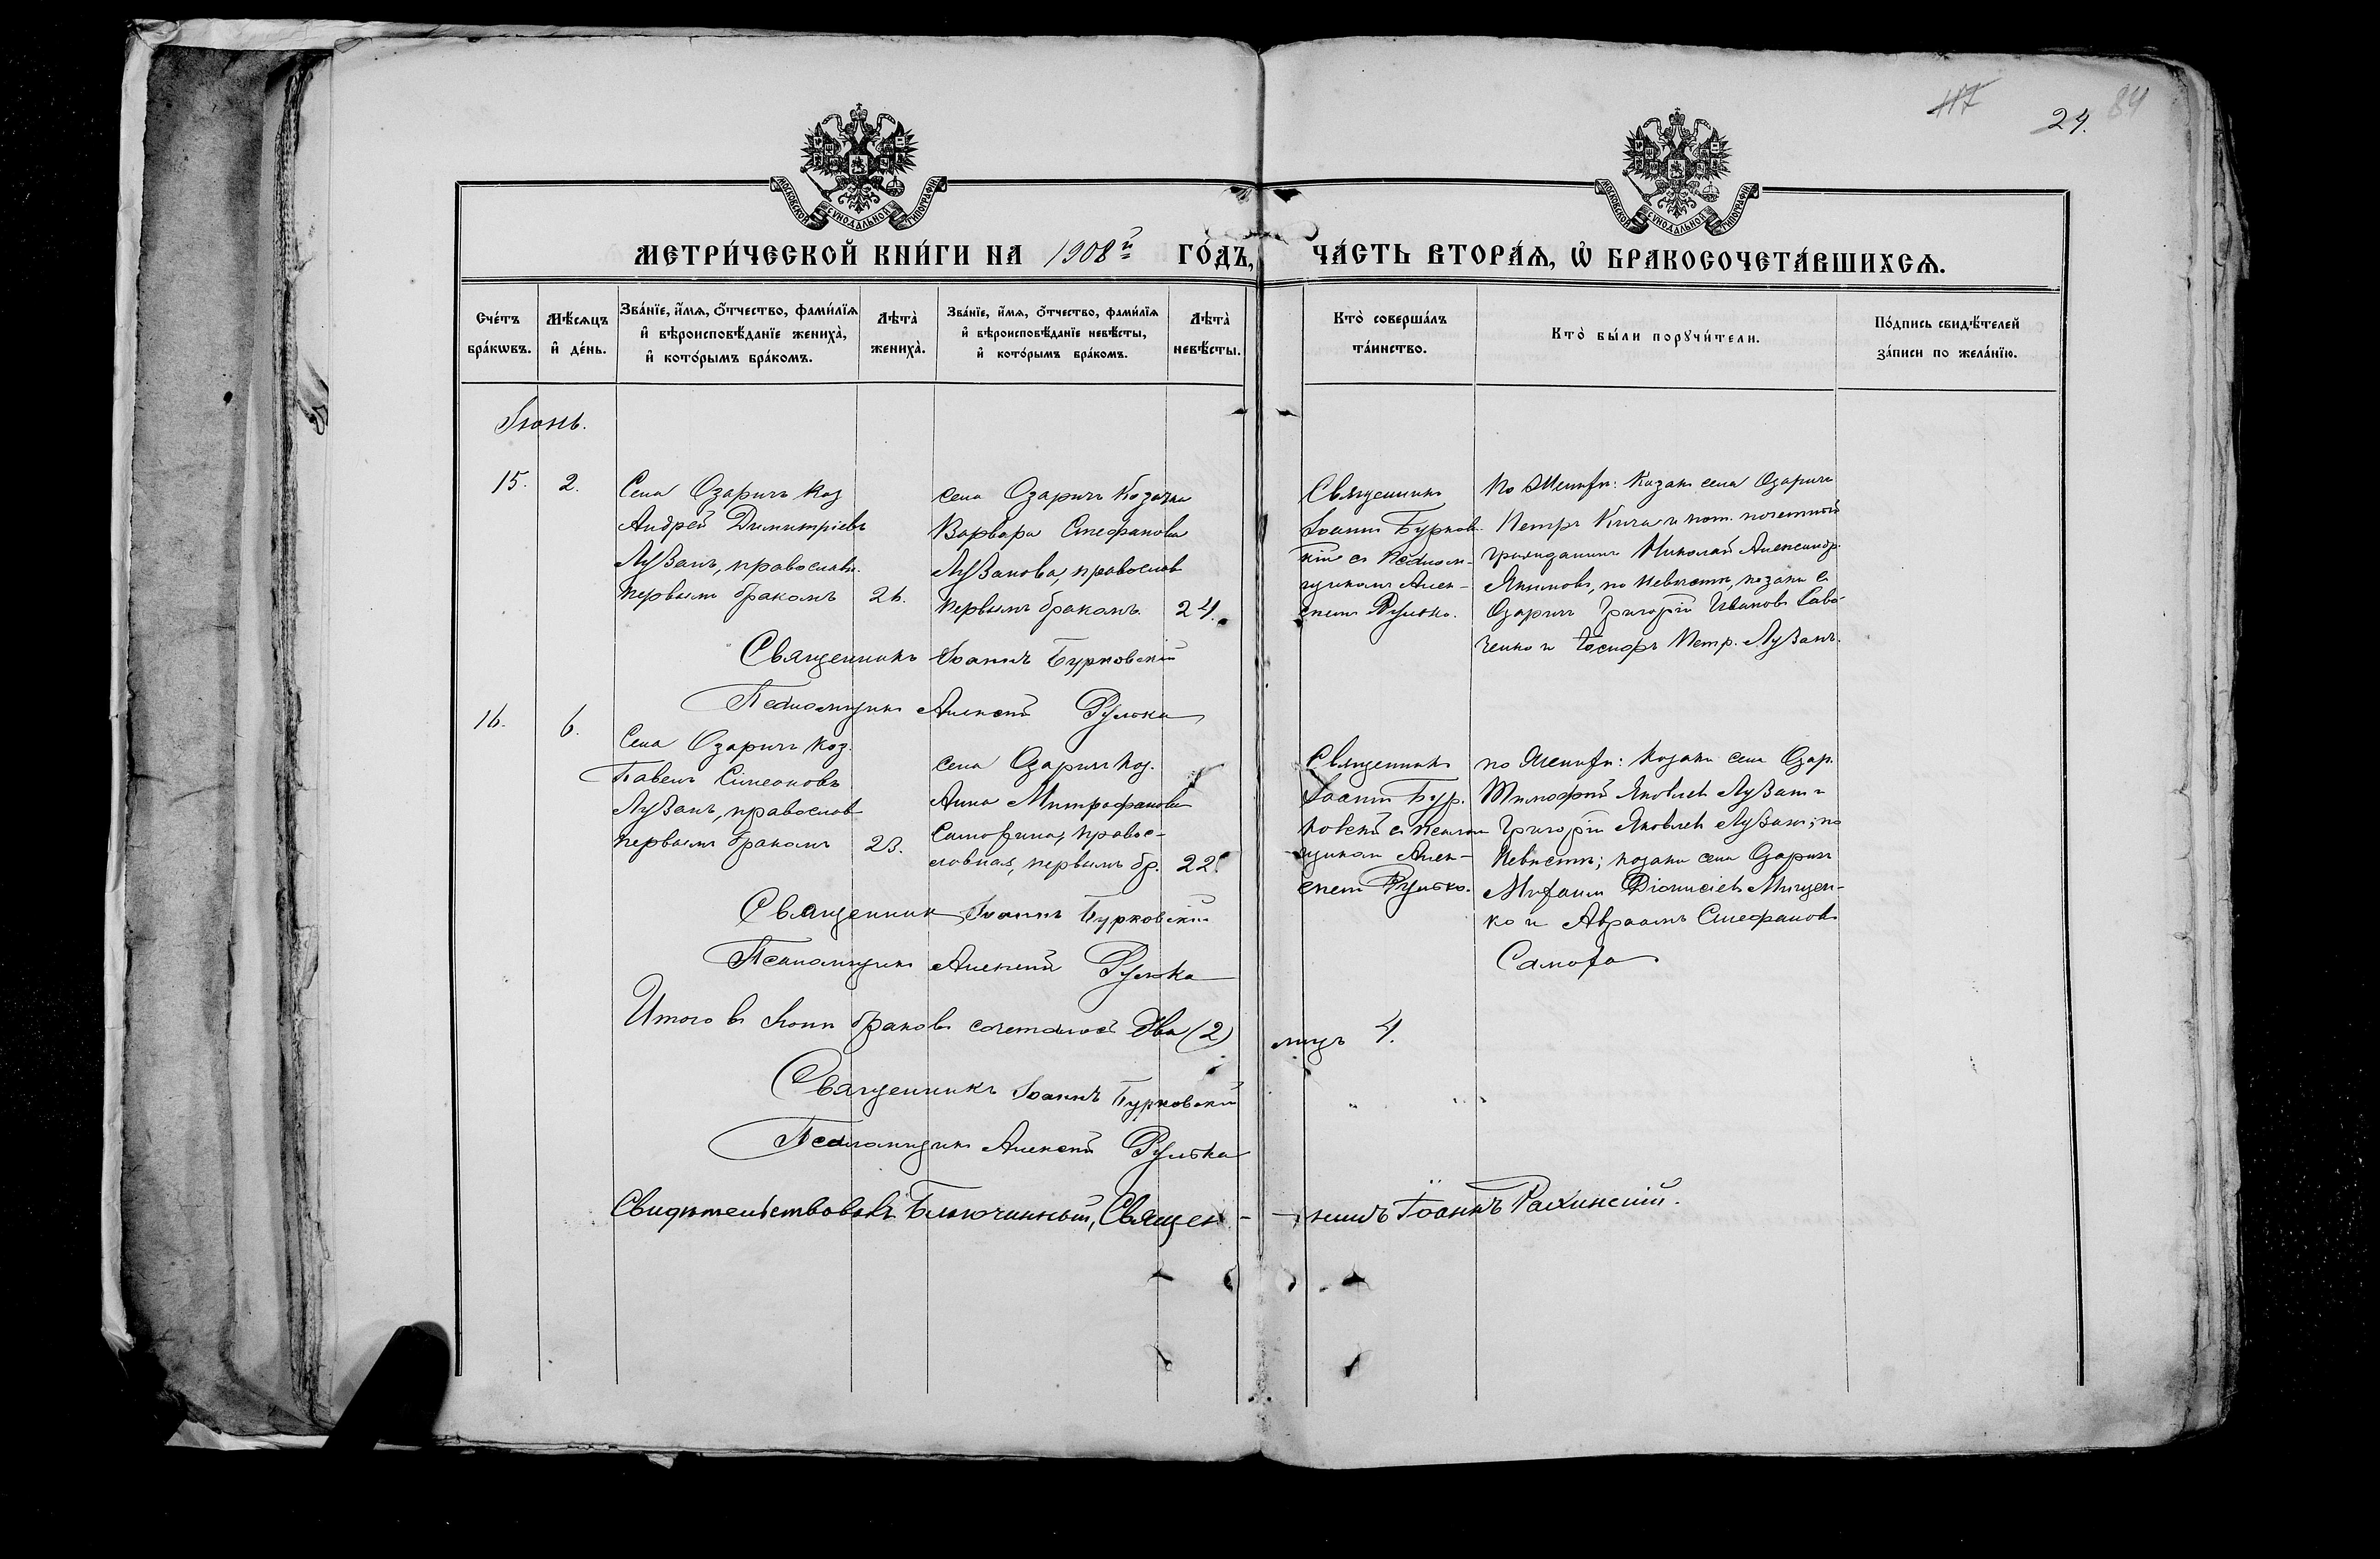 117
24. 84
МОСКОВСКОЙ СУНОДАЛЬНОЙ ТИПОГРАФІИ
МОСКОВСКОЙ СУНОДАЛЬНОЙ ТИПОГРАФІИ
МЕТРИ́ЧЕСКОЙ КНИ́ГИ НА 1908й ГО́ДЪ, ЧА́СТЬ ВТОРА́Ѧ, Ѡ҆ БРАКОСОЧЕТА́ВШИХСѦ.
Сче́тъ бра́кѡвъ.
Мѣ́сѧцъ и҆ де́нь.
Зва́нїе, и҆́мѧ, ѻ҆́тчество, фами́лїѧ
и҆ вѣроисповѣ́данїе жениха̀,
и҆ кото́рымъ бра́комъ.
Лѣта̀ жениха̀.
Зва́нїе, и҆́мѧ, ѻ҆́тчество, фами́лїѧ
и҆ вѣроисповѣ́данїе невѣ́сты,
и҆ кото́рымъ бра́комъ.
Лѣта̀ невѣ́сты.
Кто̀ соверша́лъ
та́инство.
Кто̀ бы́ли порꙋчи́тели.
По́дпись свидѣ́телей
за́писи по жела́нїю.
Іюнь.
15. 2.
Села Озаричъ Коз
Андрей Димитріевъ
Лузанъ, православн.
первымъ бракомъ 26.
села Озаричъ Козачка
Варвара Стефанова
Лузанова, православ
первымъ бракомъ 24.
Священникъ
Іоаннъ Бурков-
кій съ Псалом-
щикомъ Алек-
сѣемъ Рулько.
По Жениху: Казакъ села Озаричъ
Петръ Кича и пот. почетный
гражданинъ Николай Александр.
Якимовъ, по Невѣстѣ, козаки с.
Озаричъ Григорій Ивановъ Сав-
ченко и Іосифъ Петр. Лузанъ.
Священникъ Іоаннъ Бурковскій
Псаломщикъ Алексѣй Рулька
16. 6.
Села Озаричъ Коз.
Павелъ Симеоновъ
Лузанъ, православ
первымъ бракомъ 23.
села Озаричъ Коз.
Анна Митрофанова
Самохина, правос-
лавная, первымъ бр. 22.
Священникъ
Іоаннъ Бур-
ковскій с Псалом
щикомъ Алек-
сѣемъ Рулько.
по Жениху: Козаки села Озар.
Тимофей Яковлевъ Лузанъ и
Григорій Яковлевъ Лузанъ; по
Невѣстѣ; козаки села Озаричъ
Михаилъ Діонисіевъ Мищен-
ко и Авраамъ Стефановъ
Самоха
Священникъ Іоаннъ Бурковскій
Псаломщикъ Алексѣй Рулька
Итого въ Іюнѣ браковъ сочеталось два (2) лицъ 4.
Священникъ Іоаннъ Бурковскій
Псаломщикъ Алексѣй Рулька
Свидѣтельствовалъ Благочинный, Священ- -никъ Іоаннъ